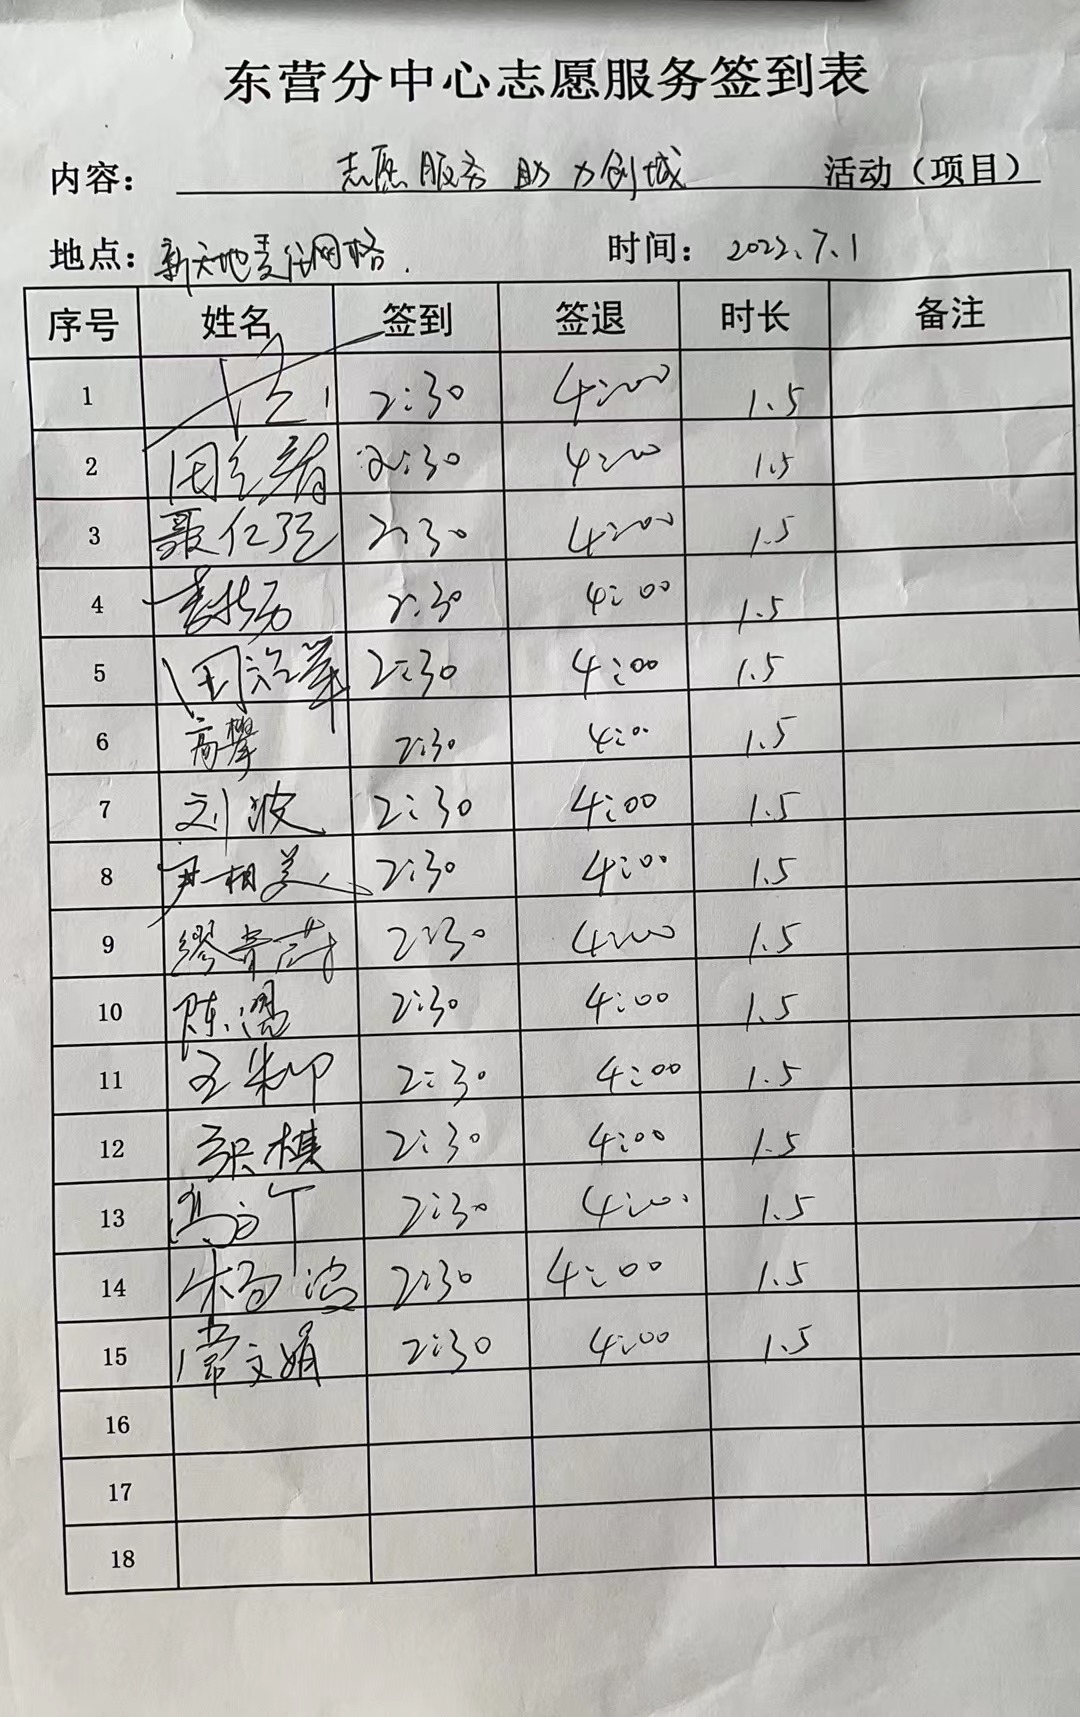 东营分中心志愿服务签到表
内容： 志愿服务 助力创城 活动（项目）
地点：新天地责任网格. 时间：2022.7.1
序号 姓名 签到 签退 时长 备注
1 2:30 4:00 1.5
2 2:30 4:00 1.5
3 2:30 4:00 1.5
4 2:30 4:00 1.5
5 2:30 4:00 1.5
6 高攀 2:30 4:00 1.5
7 刘波 2:30 4:00 1.5
8 尹相美 2:30 4:00 1.5
9 缪 2:30 4:00 1.5
10 陈 2:30 4:00 1.5
11 王 2:30 4:00 1.5
12 棋 2:30 4:00 1.5
13 2:30 4:00 1.5
14 杨波 2:30 4:00 1.5
15 常文娟 2:30 4:00 1.5
16
17
18